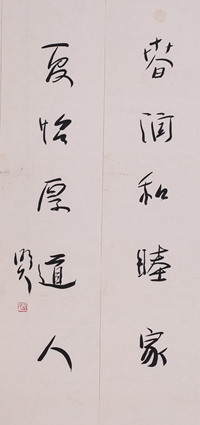 春润和睦家
夏怡厚道人